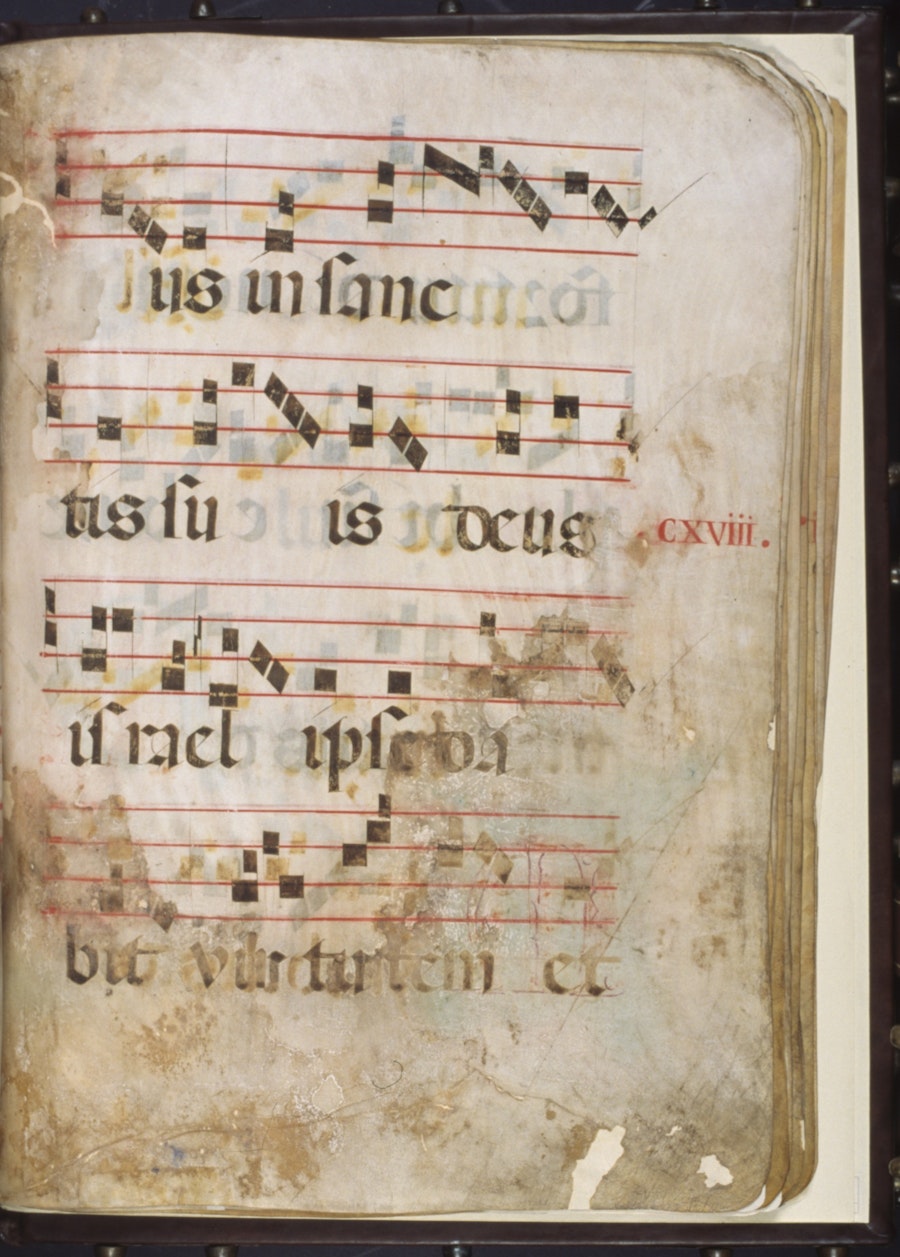 us in sanc
tis su is deus
CXVIII.
israel ipse da
bit virtutem et